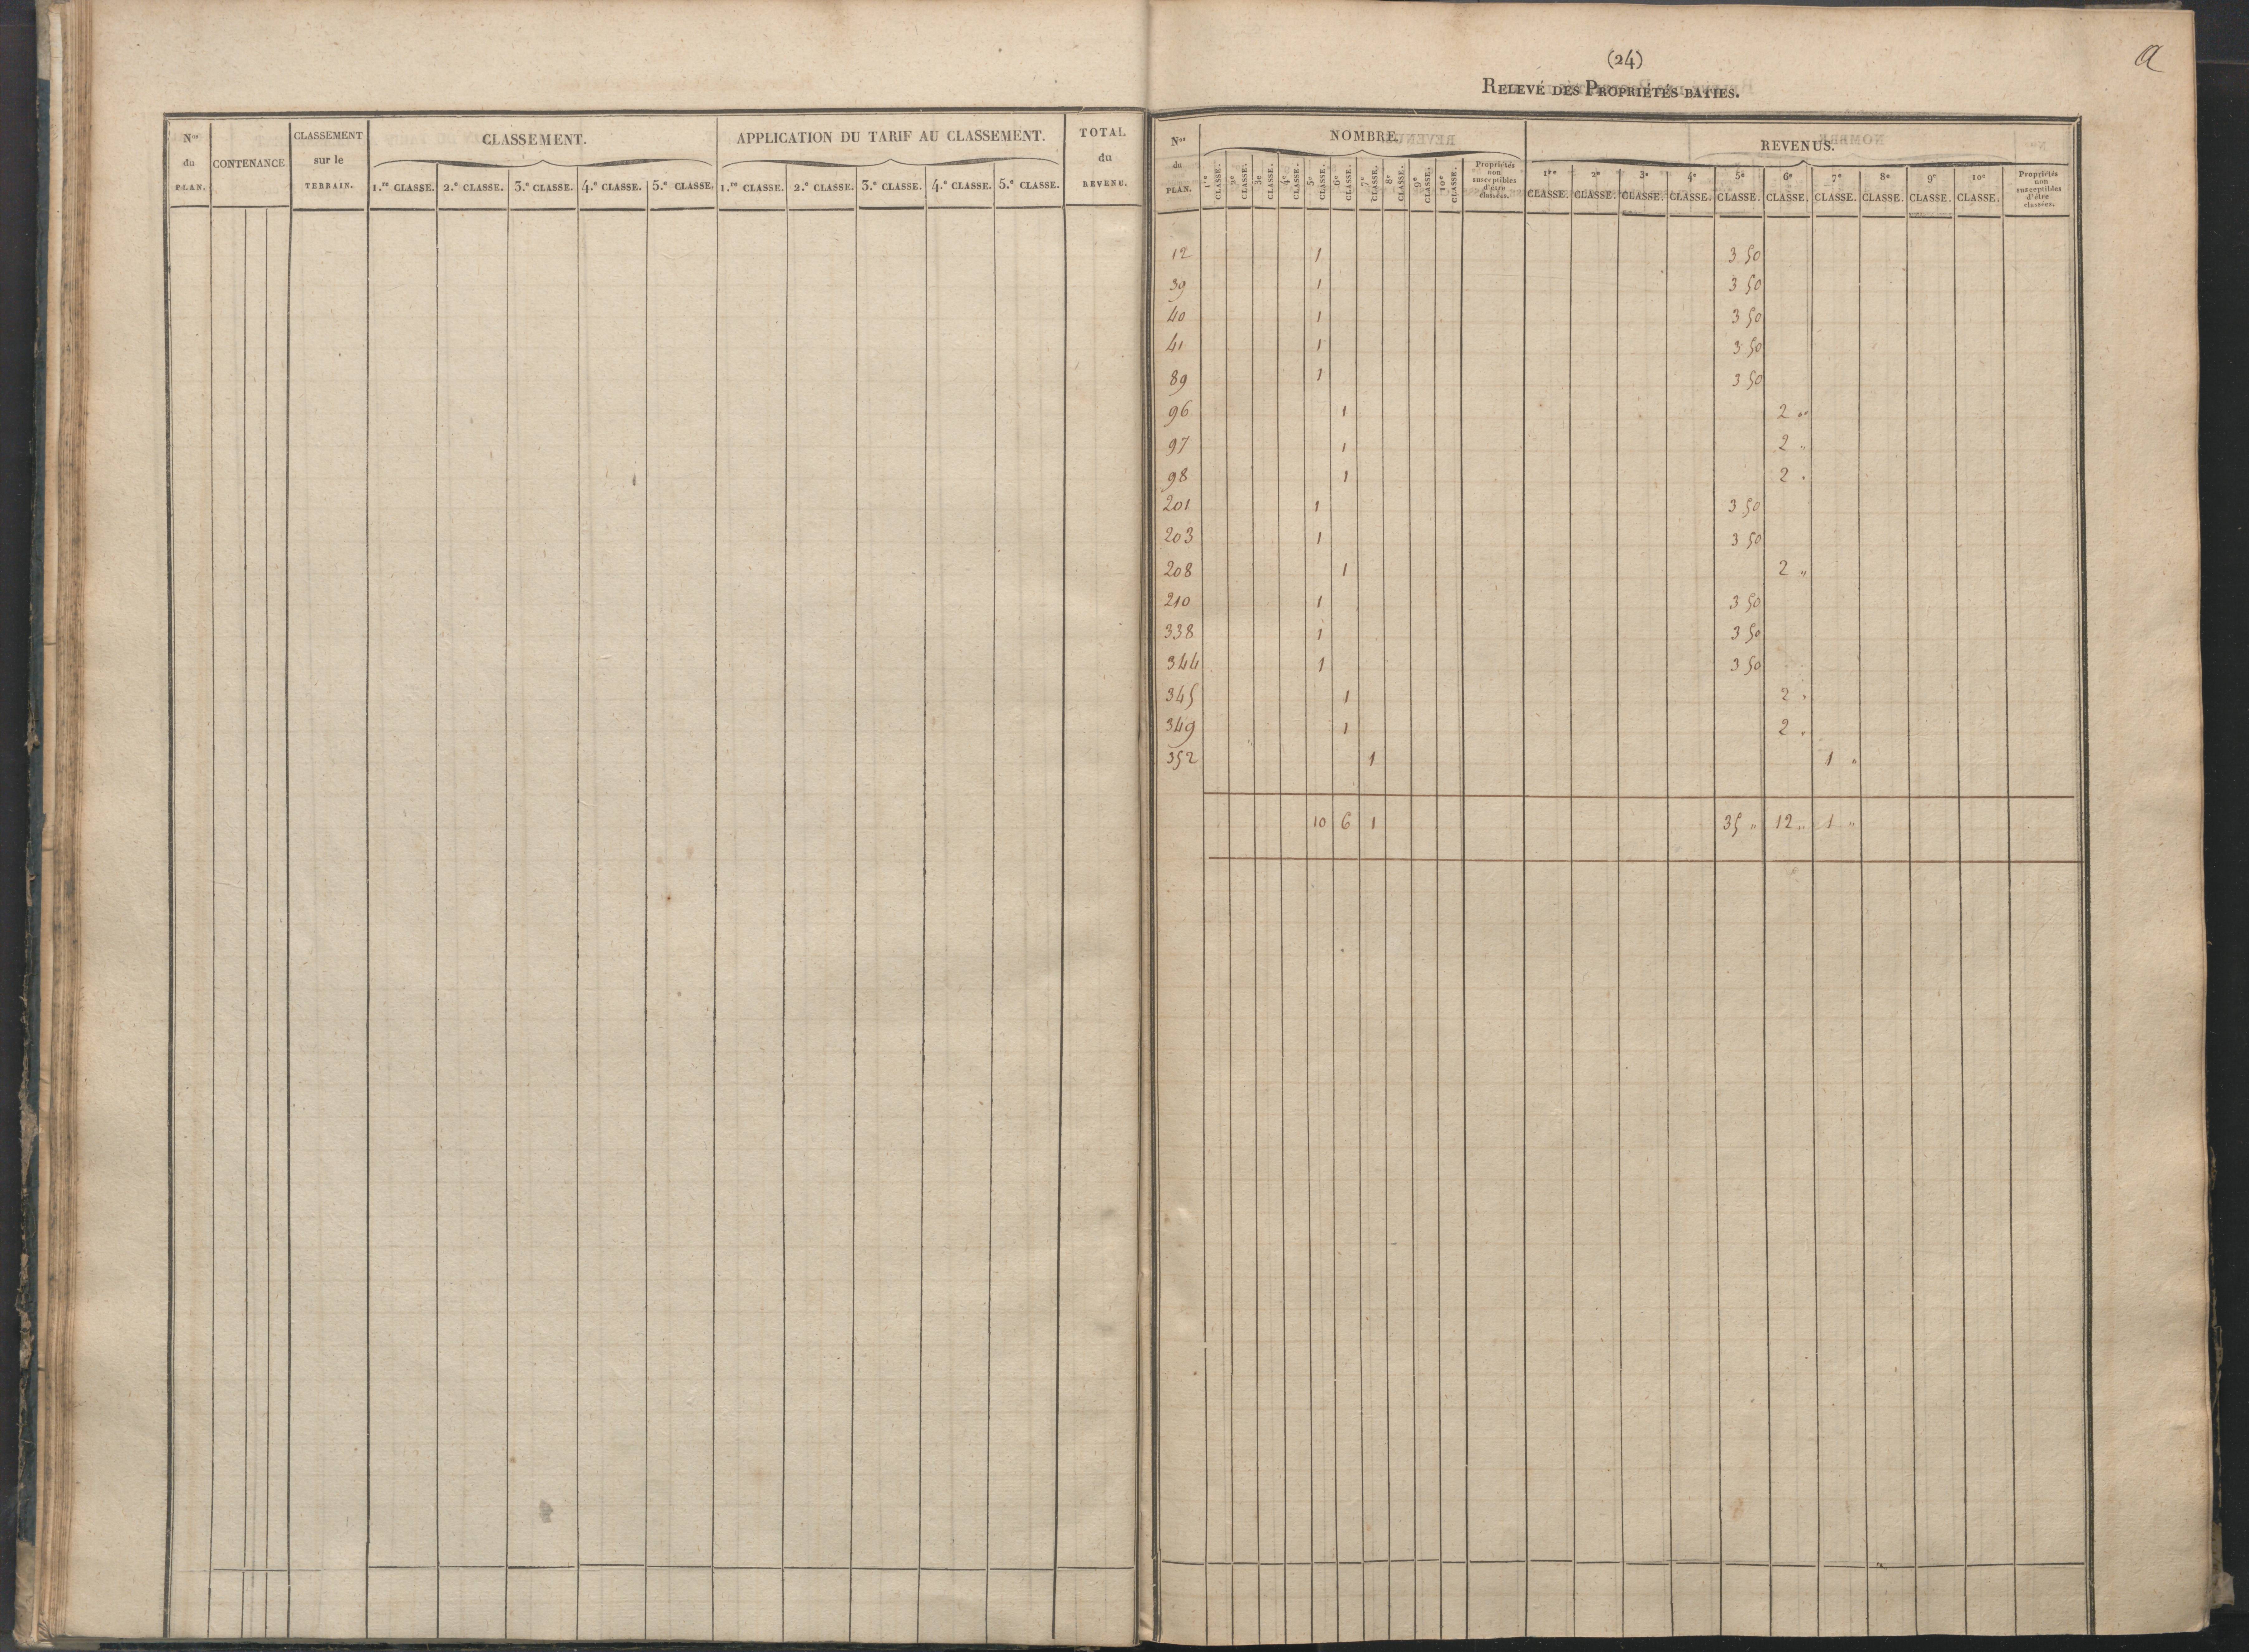 N.os du PLAN. CONTENANCE. CLASSEMENT sur le TERRAIN. CLASSEMENT. APPLICATION DU TARIF AU CLASSEMENT. TOTAL du REVENU.
1.re CLASSE. 2.e CLASSE. 3.e CLASSE. 4.e CLASSE. 5.e CLASSE. 1.re CLASSE. 2.e CLASSE. 3.e CLASSE. 4.e CLASSE. 5.e CLASSE.
(24)
a
RELEVÉ DES PROPRIÉTÉS BATIES.
N.os du PLAN. NOMBRE. REVENUS.
1re CLASSE. 2e CLASSE. 3e CLASSE. 4e CLASSE. 5e CLASSE. 6e CLASSE. 7e CLASSE. 8e CLASSE. 9e CLASSE. 10e CLASSE. Propriétés non susceptibles d'être classées. 1re CLASSE. 2e CLASSE. 3e CLASSE. 4e CLASSE. 5e CLASSE. 6e CLASSE. 7e CLASSE. 8e CLASSE. 9e CLASSE. 10e CLASSE. Propriétés non susceptibles d'être classées.
12 1 3 50
39 1 3 50
40 1 3 50
41 1 3 50
89 1 3 50
96 1 2 "
97 1 2 "
98 1 2 "
201 1 3 50
203 1 3 50
208 1 2 "
210 1 3 50
338 1 3 50
344 1 3 50
345 1 2 "
349 1 2 "
352 1 1 "
10 6 1 35 " 12 " 1 "